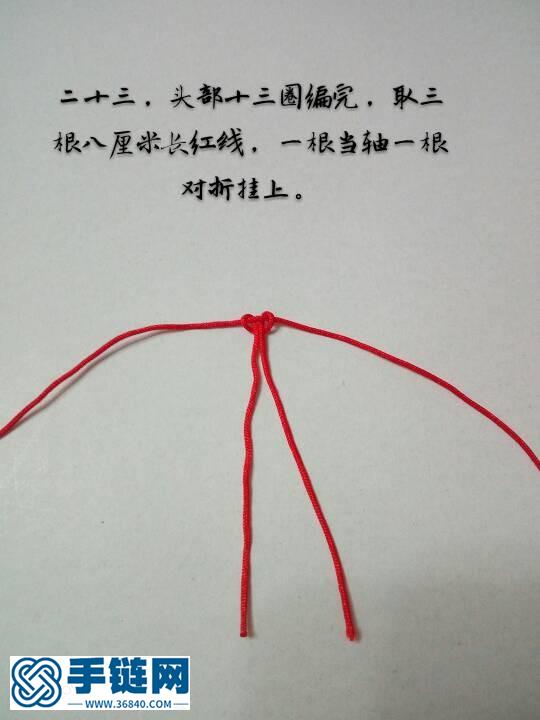 二十三，头部十三圈编完，取三
根八厘米长红线，一根当轴一根
对折挂上。
手链网
www.36840.com